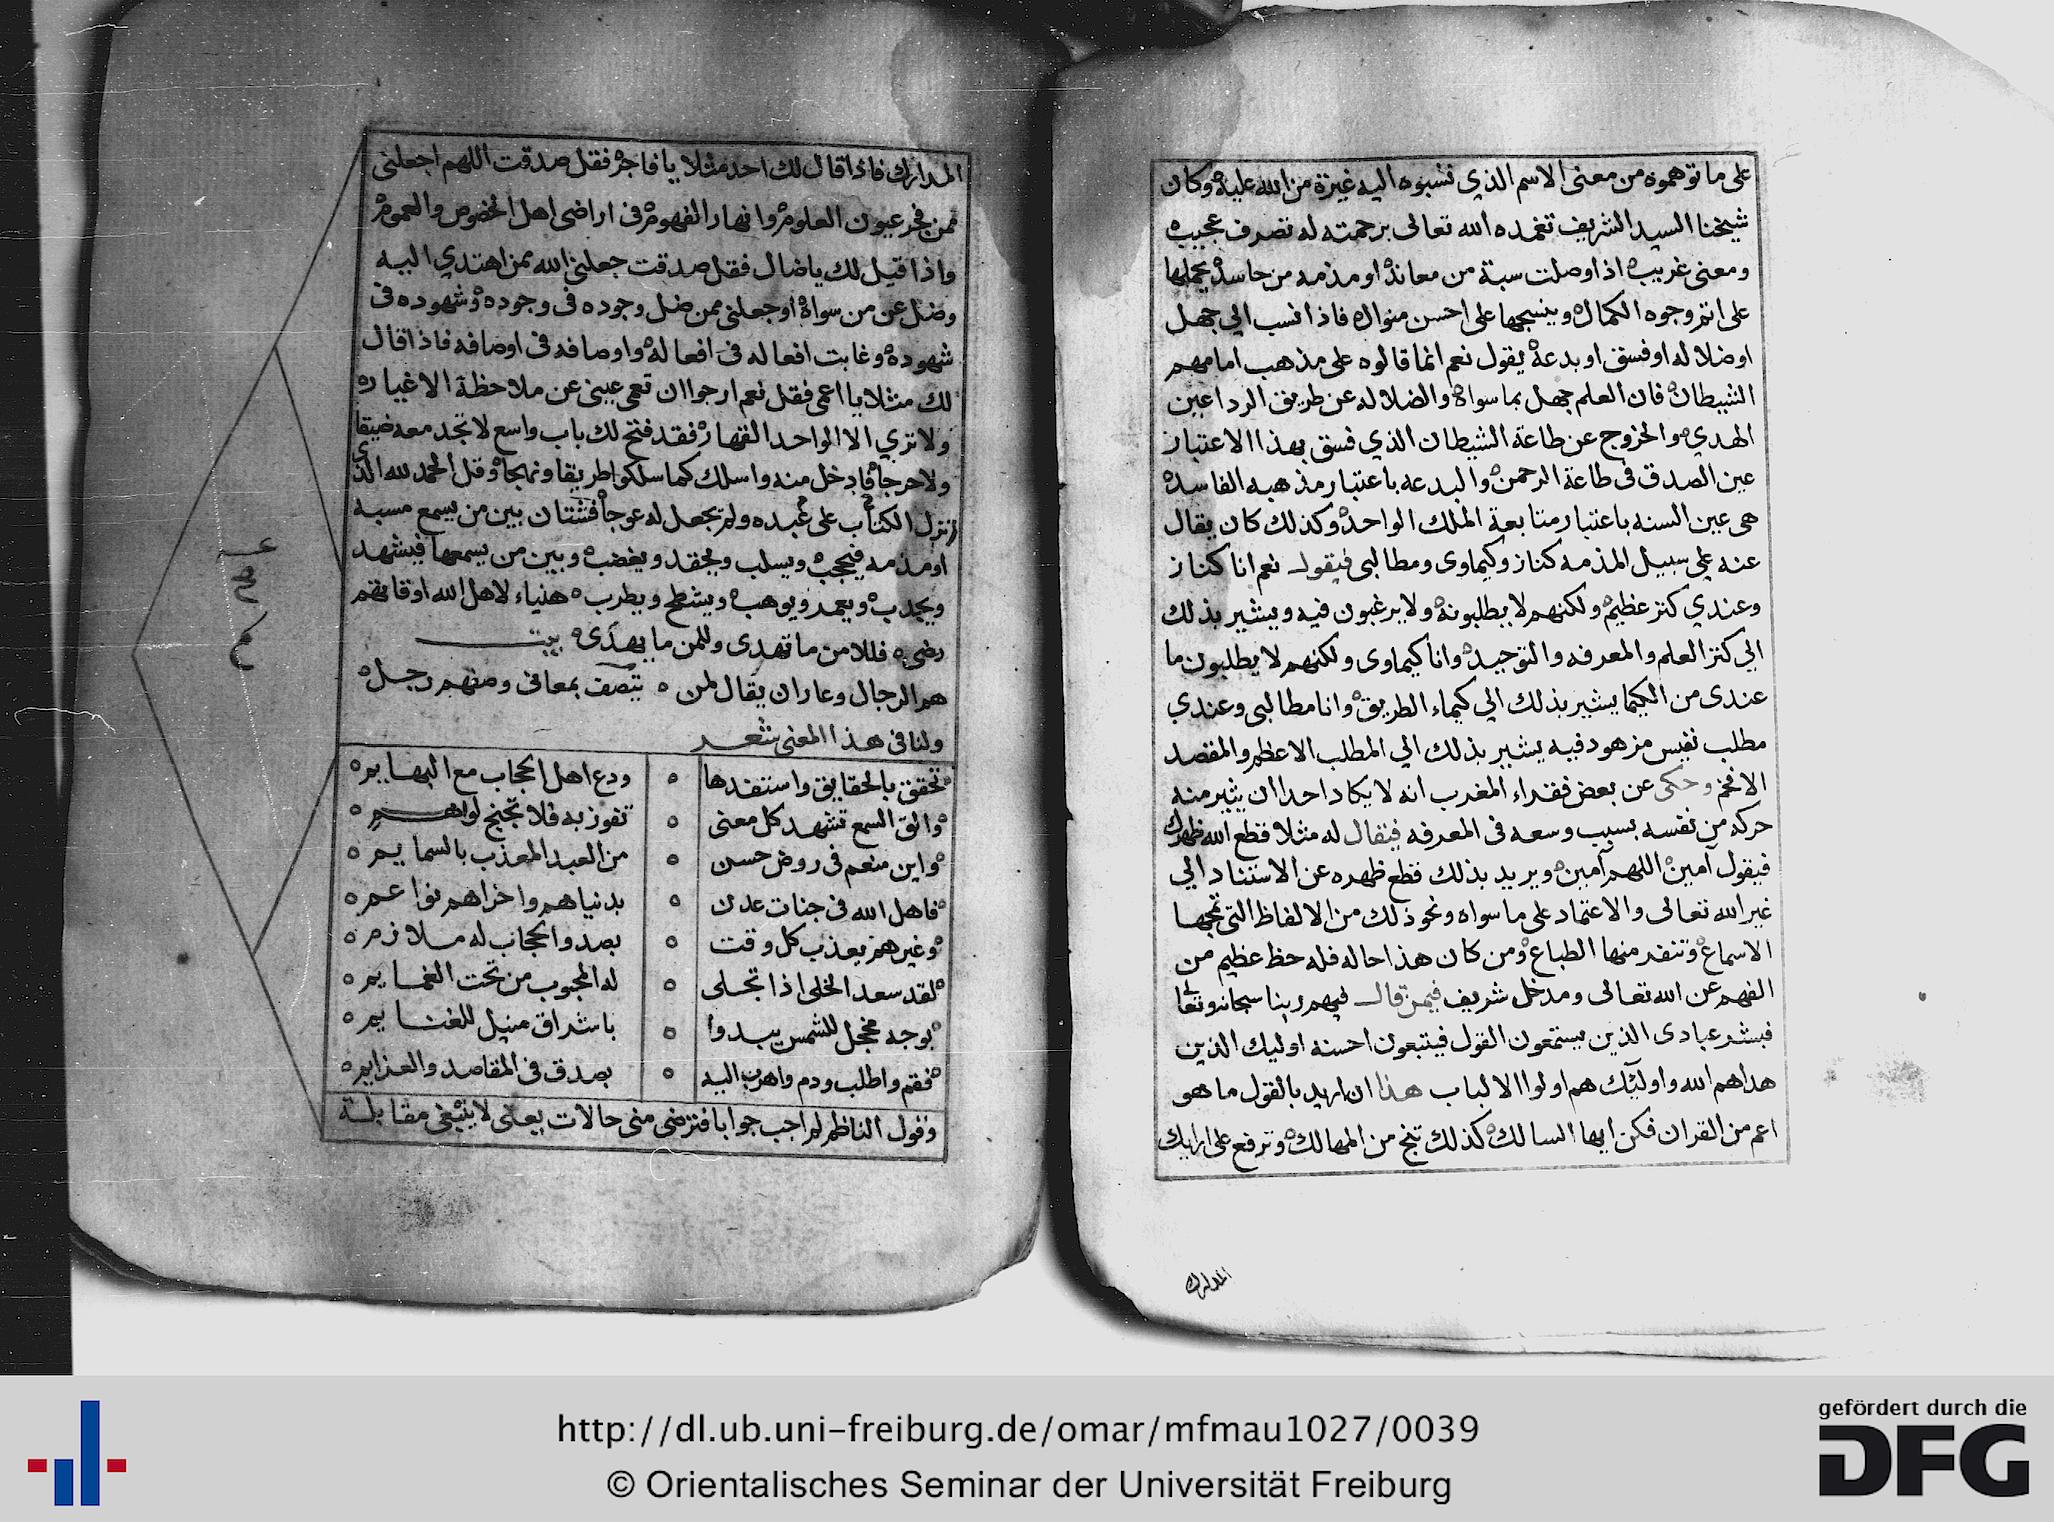 على ما توهموه من معنى الاسم الذي نسبوه اليه غيرة من الله عليه وكان
شيخنا السيد الشريف تغمده الله تعالى برحمته له تصرف عجيب
ومعنى غريب اذا وصلت سبة من معاند او مذمه من حاسد يحملها
على اتم وجوه الكمال وينسجها على احسن منوال فاذا نسب الي جهل
او ضلاله او فسق او بدعة يقول نعم انما قالوه على مذهب امامهم
الشيطان فان العلم جهل بما سواه والضلاله عن طريق الردا عين
الهدي والخروج عن طاعة الشيطان الذي فسق بهذا الاعتبار
عين الصدق في طاعة الرحمن والبدعه باعتبار مذهبه الفاسد
هي عين السنه باعتبار متابعة الملك الواحد وكذلك كان يقال
عنه علي سبيل المذمه كناز وكيماوى ومطالبى فيقول نعم انا كناز
وعندي كنز عظيم ولكنهم لا يطلبونه ولا يرغبون فيه ويشير بذلك
الي كنز العلم والمعرفه والتوحيد وانا كيماوى ولكنهم لا يطلبون ما
عندى من الكيما يشير بذلك الي كيماء الطريق وانا مطالبى وعندي
مطلب نفيس مزهود فيه يشير بذلك الي المطلب الاعظم والمقصد
الافخم وحكى عن بعض فقراء المغرب انه لا يكاد احدا ان يثير منه
حركه من نفسه بسبب وسعه في المعرفه فيقال له مثلا قطع الله ظهرك
فيقول آمين اللهم آمين ويريد بذلك قطع ظهره عن الاستناد الي
غير الله تعالى والاعتماد على ما سواه ونحو ذلك من الالفاظ التى تمجها
الاسماع وتنفر منها الطباع ومن كان هذا حاله فله حظ عظيم من
الفهم عن الله تعالى ومدخل شريف فيمن قال فيهم ربنا سبحانه وتعالى
فبشر عبادى الذين يستمعون القول فيتبعون احسنه اوليك الذين
هداهم الله واولئك هم اولوا الالباب هذا ان اريد بالقول ما هو
اعم من القران فكن ايها السالك كذلك تنج من المهالك وترفع على ارايك
المدارك
المدارك فاذا قال لك احد مثلا يا فاجر فقل صدقت اللهم اجعلنى
ممن فجر عيون العلوم وانهار الفهوم في اراضى اهل الخصوص والعموم
واذا قيل لك يا ضال فقل صدقت جعلنى الله ممن اهتدي اليه
وضل عن من سواه او جعلنى ممن ضل وجوده في وجوده وشهوده في
شهوده وغابت افعاله في افعاله واوصافه في اوصافه فاذا قال
لك مثلا يا اعمى فقل نعم ارجوا ان تعمى عينى عن ملاحظة الاغيار
ولا تري الا الواحد القهار فقد فتح لك باب واسع لا تجد معه ضيقا
ولا حرجا فادخل منه واسلك كما سلكوا طريقا ونهجا وقل الحمد لله الذي
انزل الكتاب على عبده ولم يجعل له عوجا فشتان بين من يسمع مسبه
او مذمه فيحجب ويسلب ويحقد ويغضب وبين من يسمعها فيشهد
ويجذب ويحمد ويوهب ويشطح ويطرب هنياء لاهل الله اوقاتهم
رضى فللامن ما تهدى وللمن ما يهدى بيت
هم الرجال وعار ان يقال لمن ه يتصف بمعانى وصفهم رجل
ولنا في هذا المعنى شعر
تحقق بالحقايق واستفدها ه ودع اهل الحجاب مع البهايم
والق السمع تشهد كل معنى ه تفوز به فلا تجنح لواهم
واين منعم في روض حسن ه من العبد المعذب بالسمايم
فاهل الله في جنات عدن ه بدنياهم واخراهم نواعم
وغيرهم يعذب كل وقت ه بصد والحجاب له ملازم
لقد سعد الخلى اذا تجلى ه له المحبوب من تحت الغمايم
بوجه مخجل للشمس يبدوا ه باشراق منيل للغنايم
فقم واطلب ودم واهرب اليه ه بصدق في المقاصد والعزايم
وقول الناظم لم اجب جوابا فتزضى منى حالات يعنى لا ينبغى مقابلة
http://dl.ub.uni-freiburg.de/omar/mfmau1027/0039
© Orientalisches Seminar der Universität Freiburg
gefördert durch die
DFG